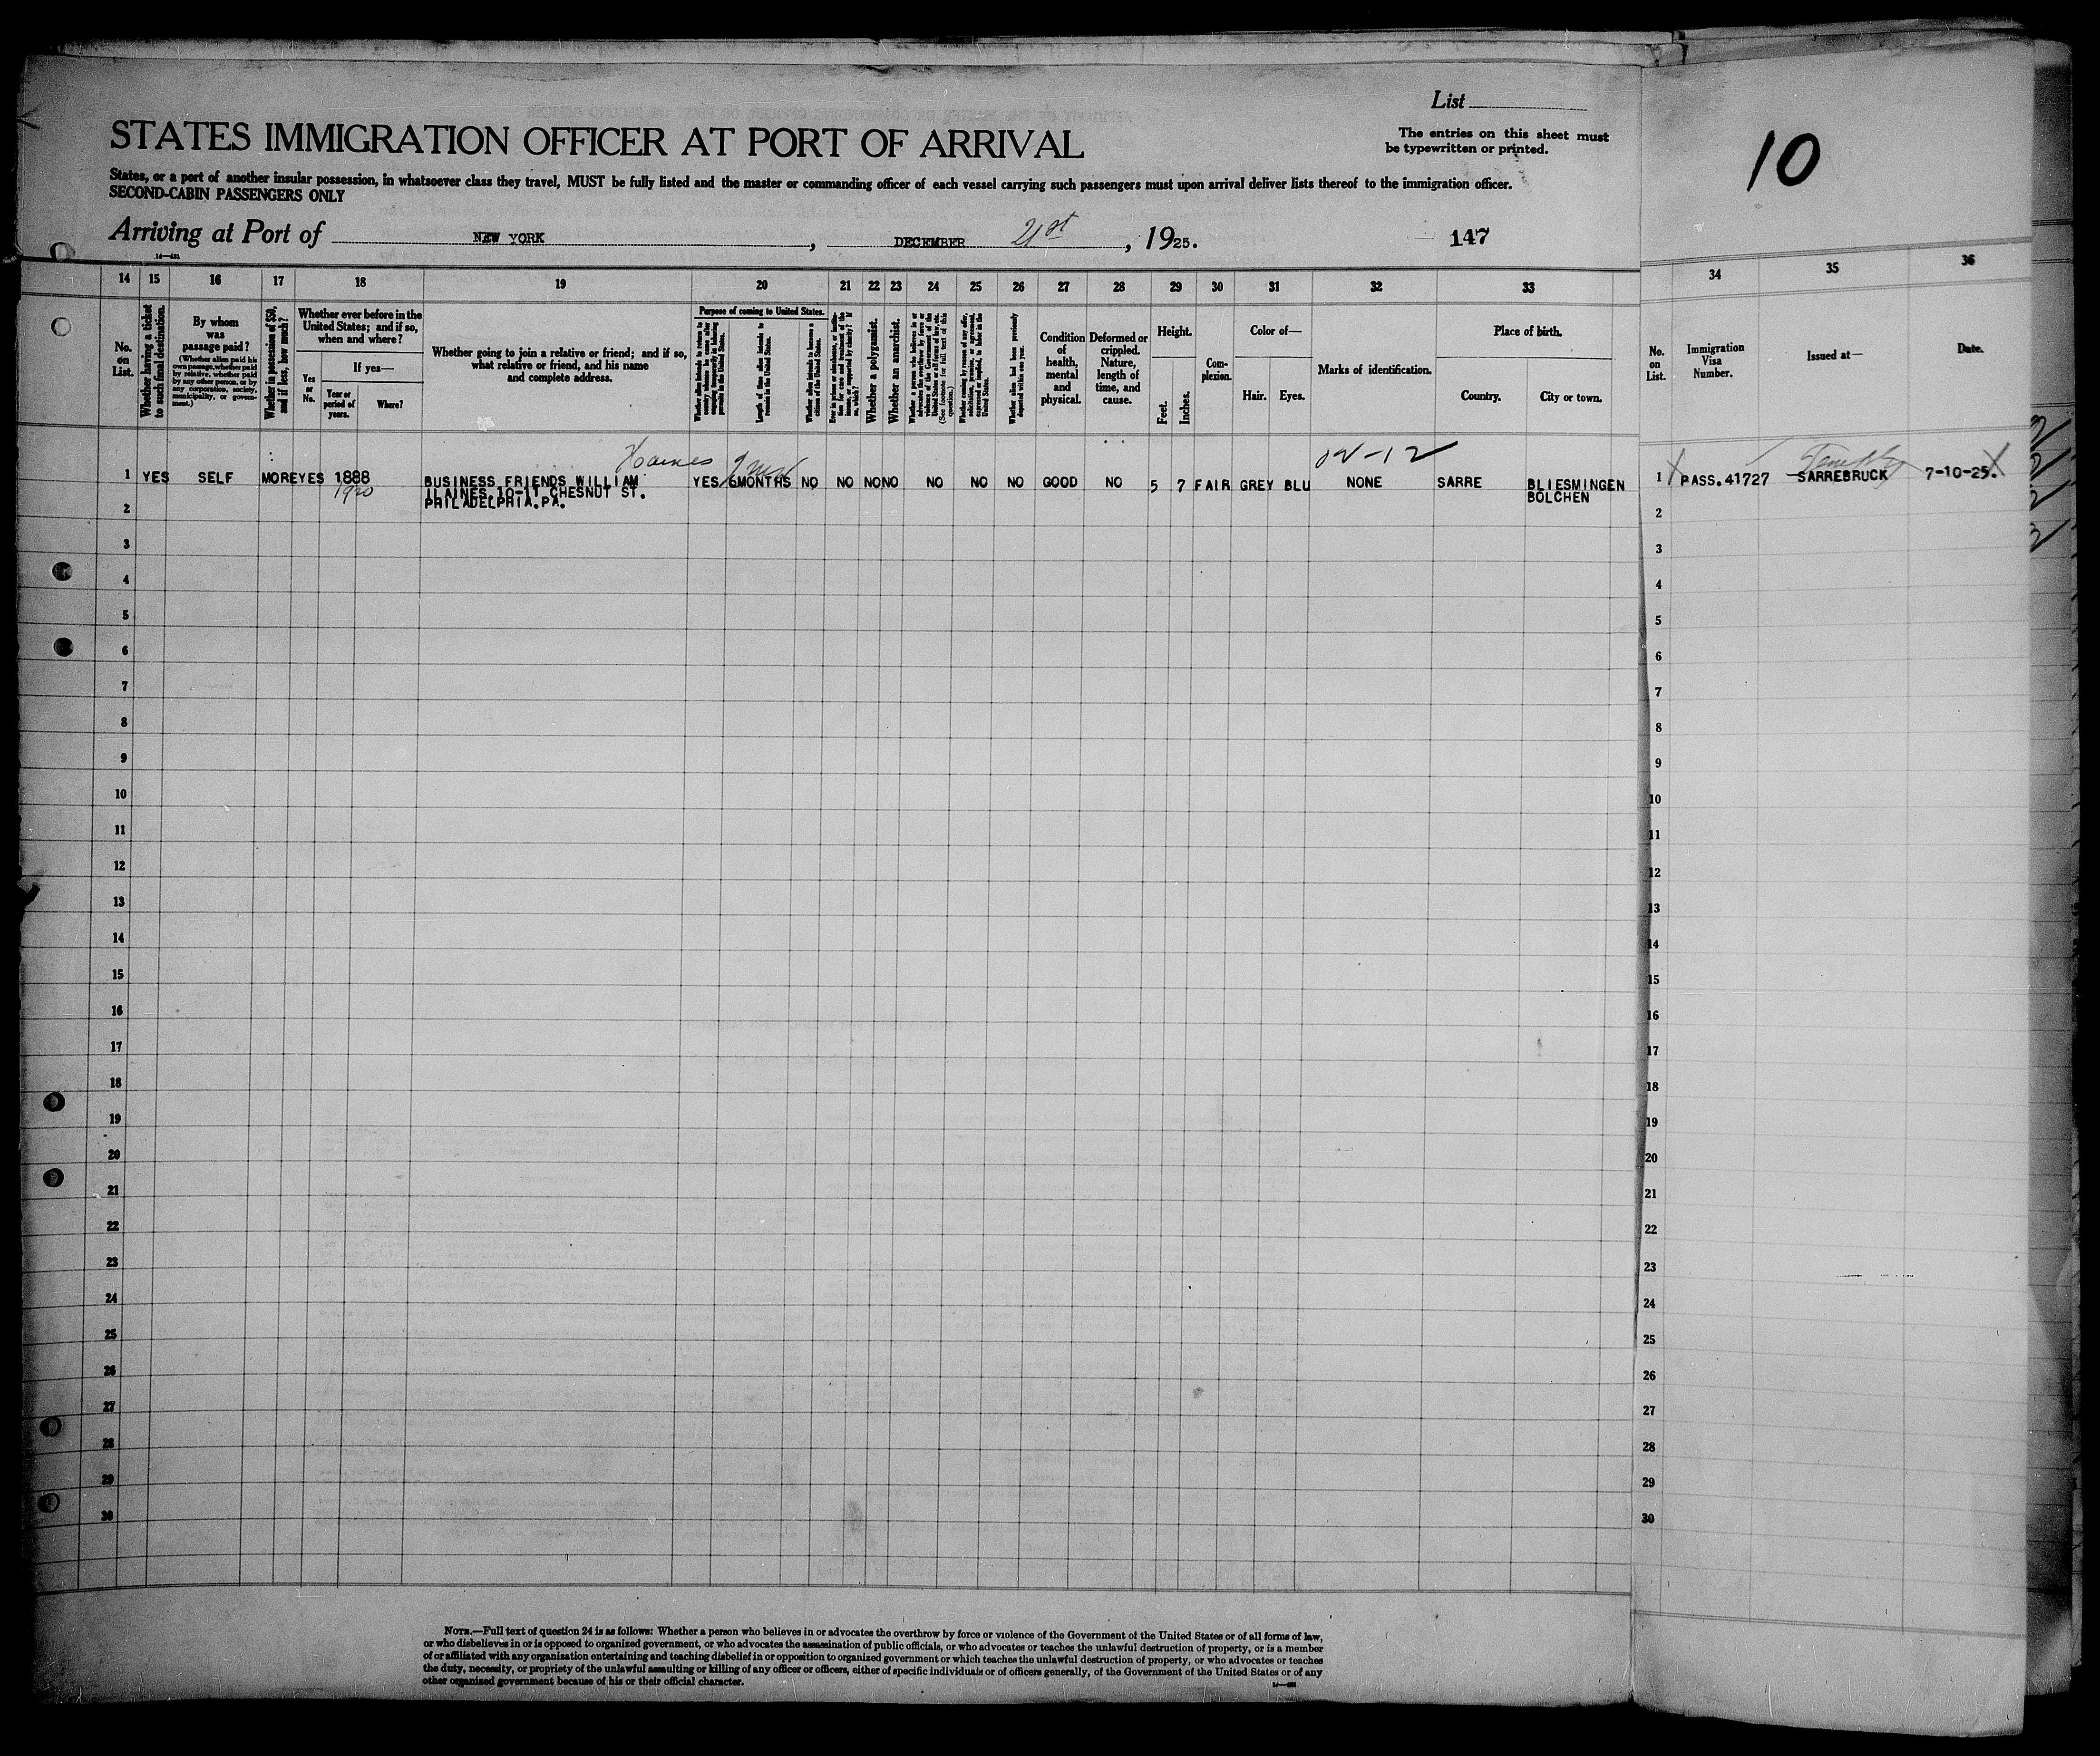 List
STATES IMMIGRATION OFFICER AT PORT OF ARRIVAL
The entries on this sheet must
be typewritten or printed.
10
States, or a port of another insular possession, in whatsoever class they travel, MUST be fully listed and the master or commanding officer of each vessel carrying such passengers must upon arrival deliver lists thereof to the immigration officer.
SECOND-CABIN PASSENGERS ONLY
Arriving at Port of NEW YORK, DECEMBER 21st, 1925.
147
14 15 16 17 18 19 20 21 22 23 24 25 26 27 28 29 30 31 32 33 34 35 36
No. on List.
Whether having a ticket to such final destination.
By whom was passage paid?
(Whether alien paid his own passage, whether paid by relative, whether paid by any other person, or by any corporation, society, municipality, or government.)
Whether in possession of $50, and if less, how much?
Whether ever before in the United States; and if so, when and where?
Yes or No.
If yes—
Year or period of years.
Where?
Whether going to join a relative or friend; and if so, what relative or friend, and his name and complete address.
Purpose of coming to United States.
Length of time alien intends to remain in the United States.
Whether alien intends to become a citizen of the United States.
Whether a polygamist.
Whether an anarchist.
Whether alien had been previously deported within one year.
Condition of health, mental and physical.
Deformed or crippled. Nature, length of time, and cause.
Height.
Feet.
Inches.
Complexion.
Color of—
Hair. Eyes.
Marks of identification.
Place of birth.
Country.
City or town.
No. on List.
Immigration Visa Number.
Issued at—
Date.
Haines
1 YES SELF MORE YES 1888 BUSINESS FRIENDS WILLIAM YES 6MONTHS NO NO NO NO NO NO NO GOOD NO 5 7 FAIR GREY BLU NONE SARRE BLIESMINGEN 1 PASS.41727 SARREBRUCK 7-10-25.
1920 ILAINES 10-11 CHESNUT ST. BOLCHEN
PHILADELPRIA.PA.
2 2
3 3
4 4
5 5
6 6
7 7
8 8
9 9
10 10
11 11
12 12
13 13
14 14
15 15
16 16
17 17
18 18
19 19
20 20
21 21
22 22
23 23
24 24
25 25
26 26
27 27
28 28
29 29
30 30
NOTE.—Full text of question 24 is as follows: Whether a person who believes in or advocates the overthrow by force or violence of the Government of the United States or of all forms of law,
or who disbelieves in or is opposed to organized government, or who advocates the assassination of public officials, or who advocates or teaches the unlawful destruction of property, or is a member
of or affiliated with any organization entertaining and teaching disbelief in or opposition to organized government or which teaches the unlawful destruction of property, or who advocates or teaches
the duty, necessity, or propriety of the unlawful assaulting or killing of any officer or officers, either of specific individuals or of officers generally, of the Government of the United States or of any
other organized government because of his or their official character.